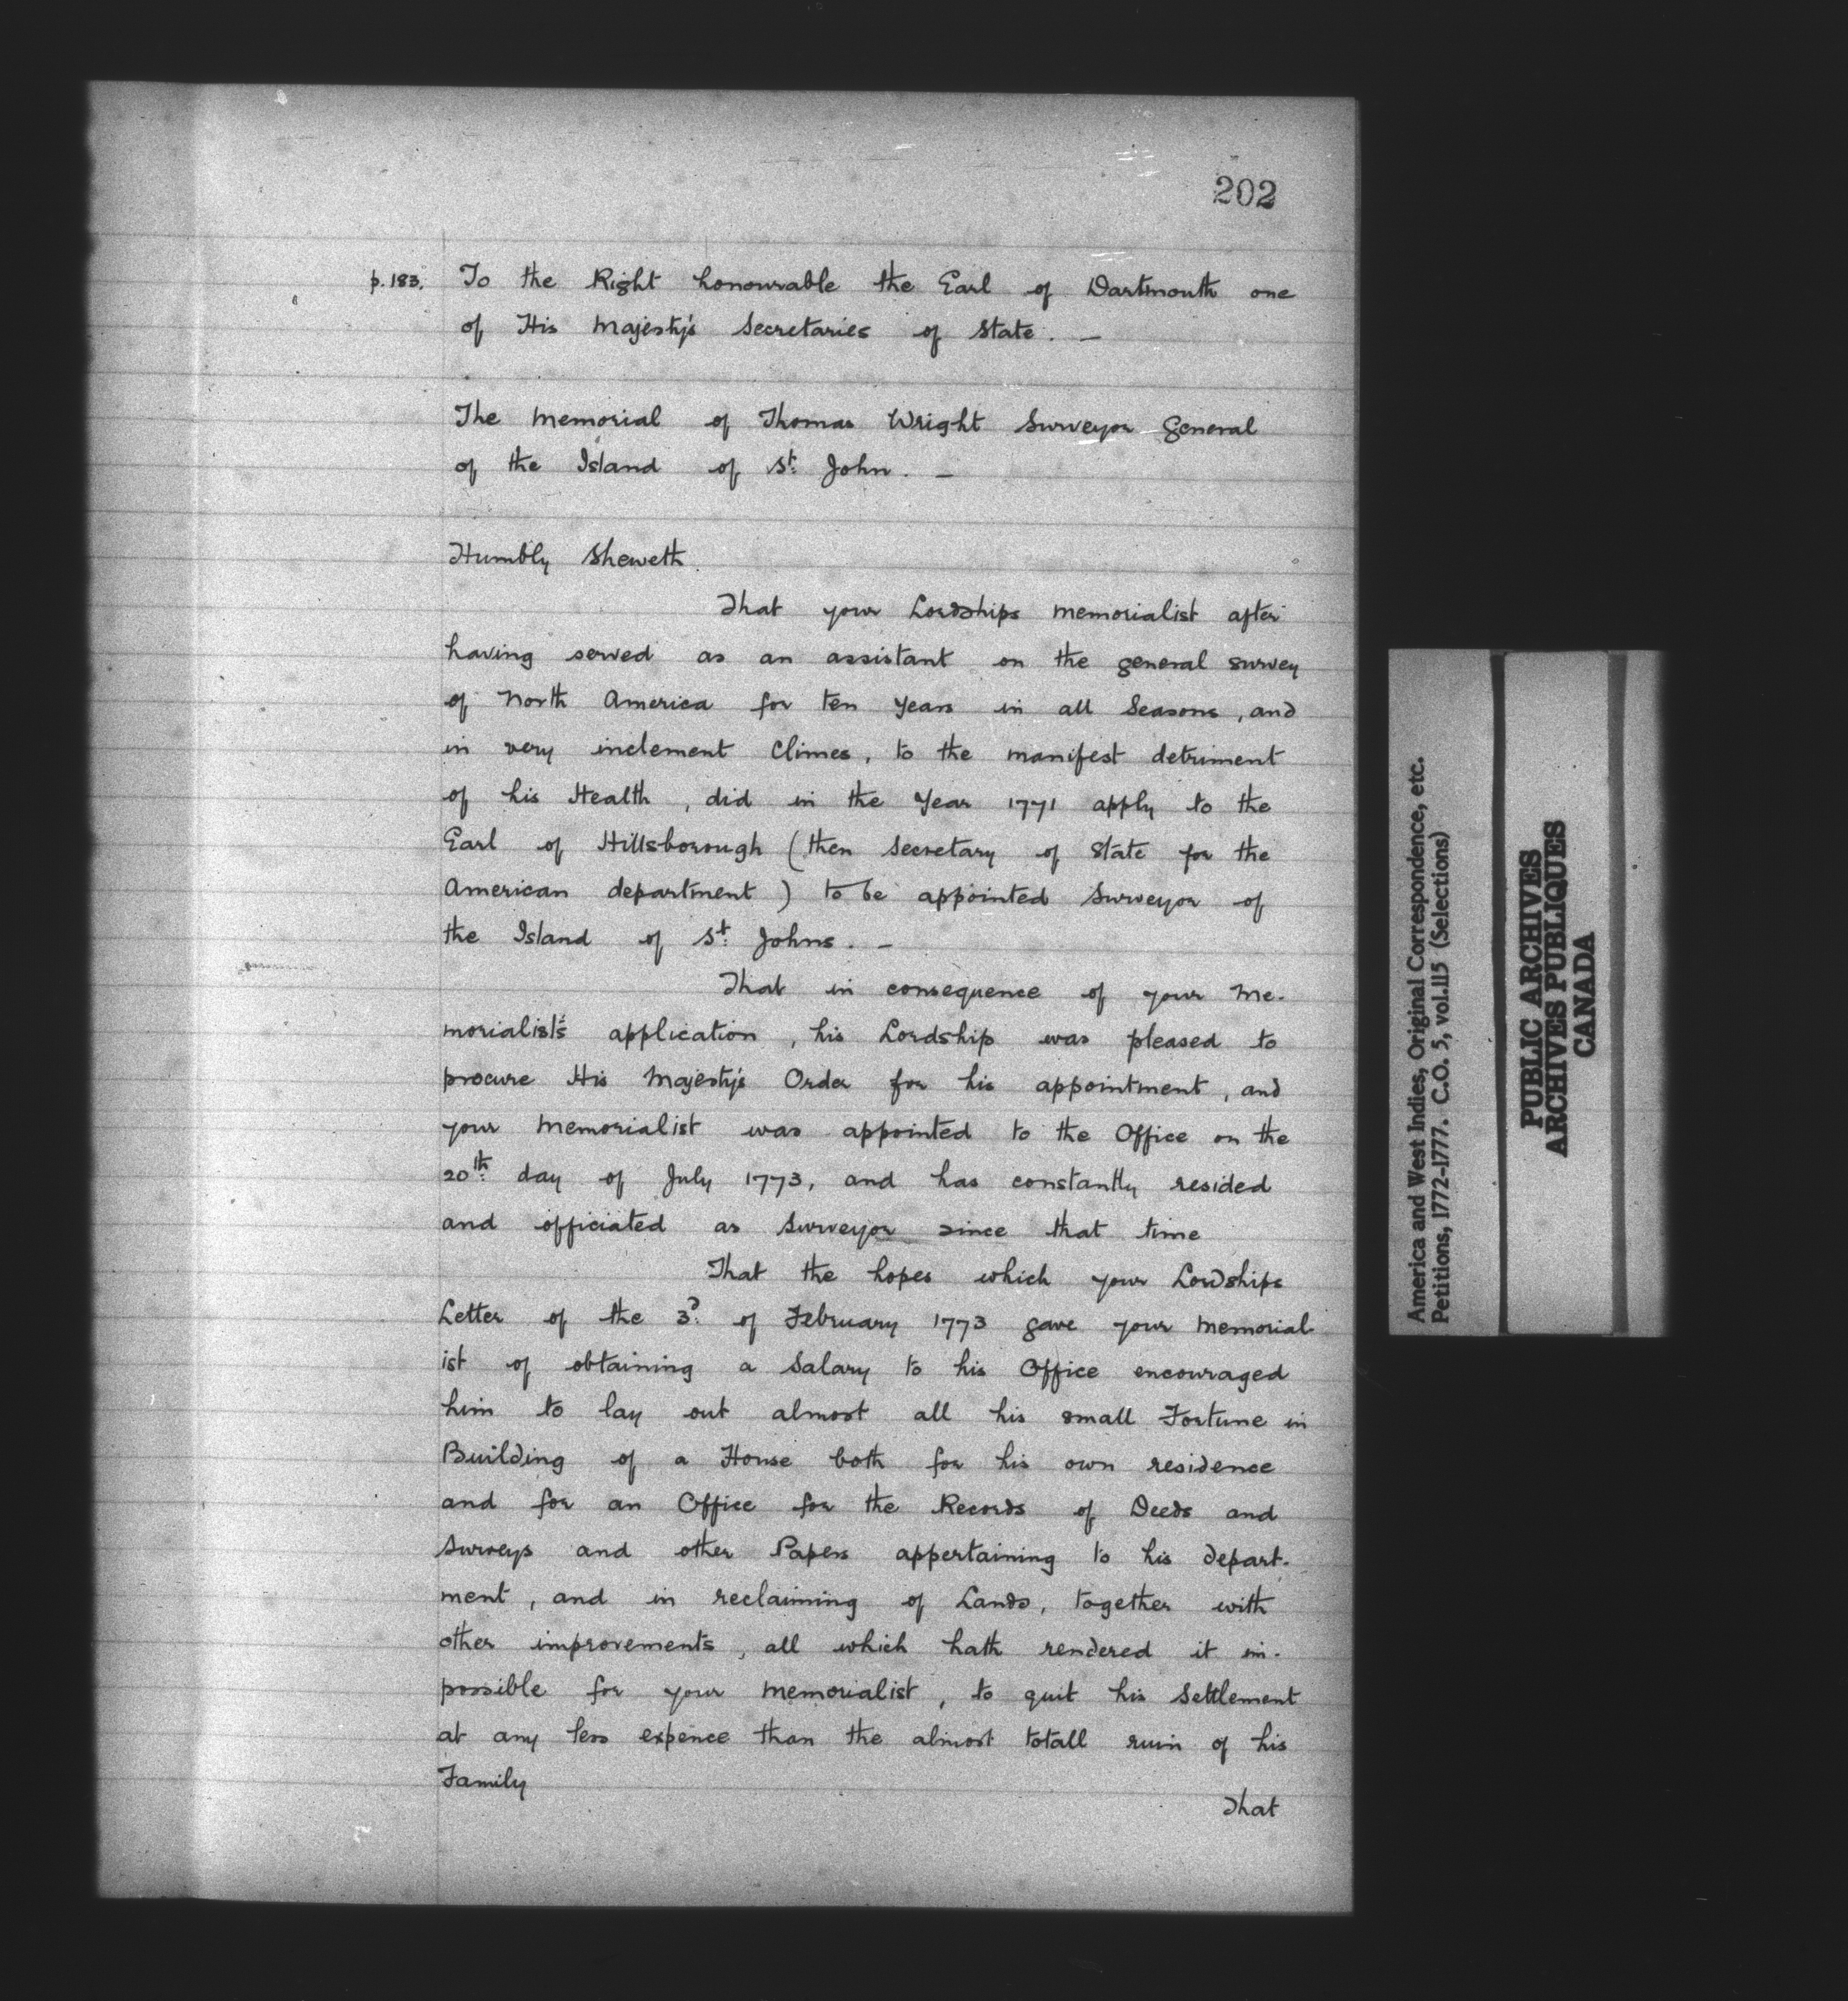 202
p.183. To the Right honourable the Earl of Dartmouth one
of His Majesty's Secretaries of State. —
The Memorial of Thomas Wright Surveyor General
of the Island of St. John. —
Humbly Sheweth.
That your Lordships memorialist after
having served as an assistant on the general survey
of North America for ten Years in all Seasons, and
in very inclement Climes, to the manifest detriment
of his Health, did in the Year 1771 apply to the
Earl of Hillsborough (then Secretary of State for the
American department) to be appointed Surveyor of
the Island of St. Johns. —
That in consequence of your Me-
morialist's application, his Lordship was pleased to
procure His Majesty's Order for his appointment, and
your Memorialist was appointed to the Office on the
20th. day of July 1773, and has constantly resided
and officiated as Surveyor since that time
That the hopes which your Lordships
Letter of the 3d. of February 1773 gave your Memorial-
ist of obtaining a Salary to his Office encouraged
him to lay out almost all his small Fortune in
Building of a House both for his own residence
and for an Office for the Records of Deeds and
Surveys and other Papers appertaining to his depart-
ment, and in reclaiming of Lands, together with
other improvements, all which hath rendered it im-
possible for your Memorialist, to quit his Settlement
at any less expence than the almost totall ruin of his
Family
That
America and West Indies, Original Correspondence, etc.
Petitions, 1772-1777. C.O. 5, vol.115 (Selections)
PUBLIC ARCHIVES
ARCHIVES PUBLIQUES
CANADA